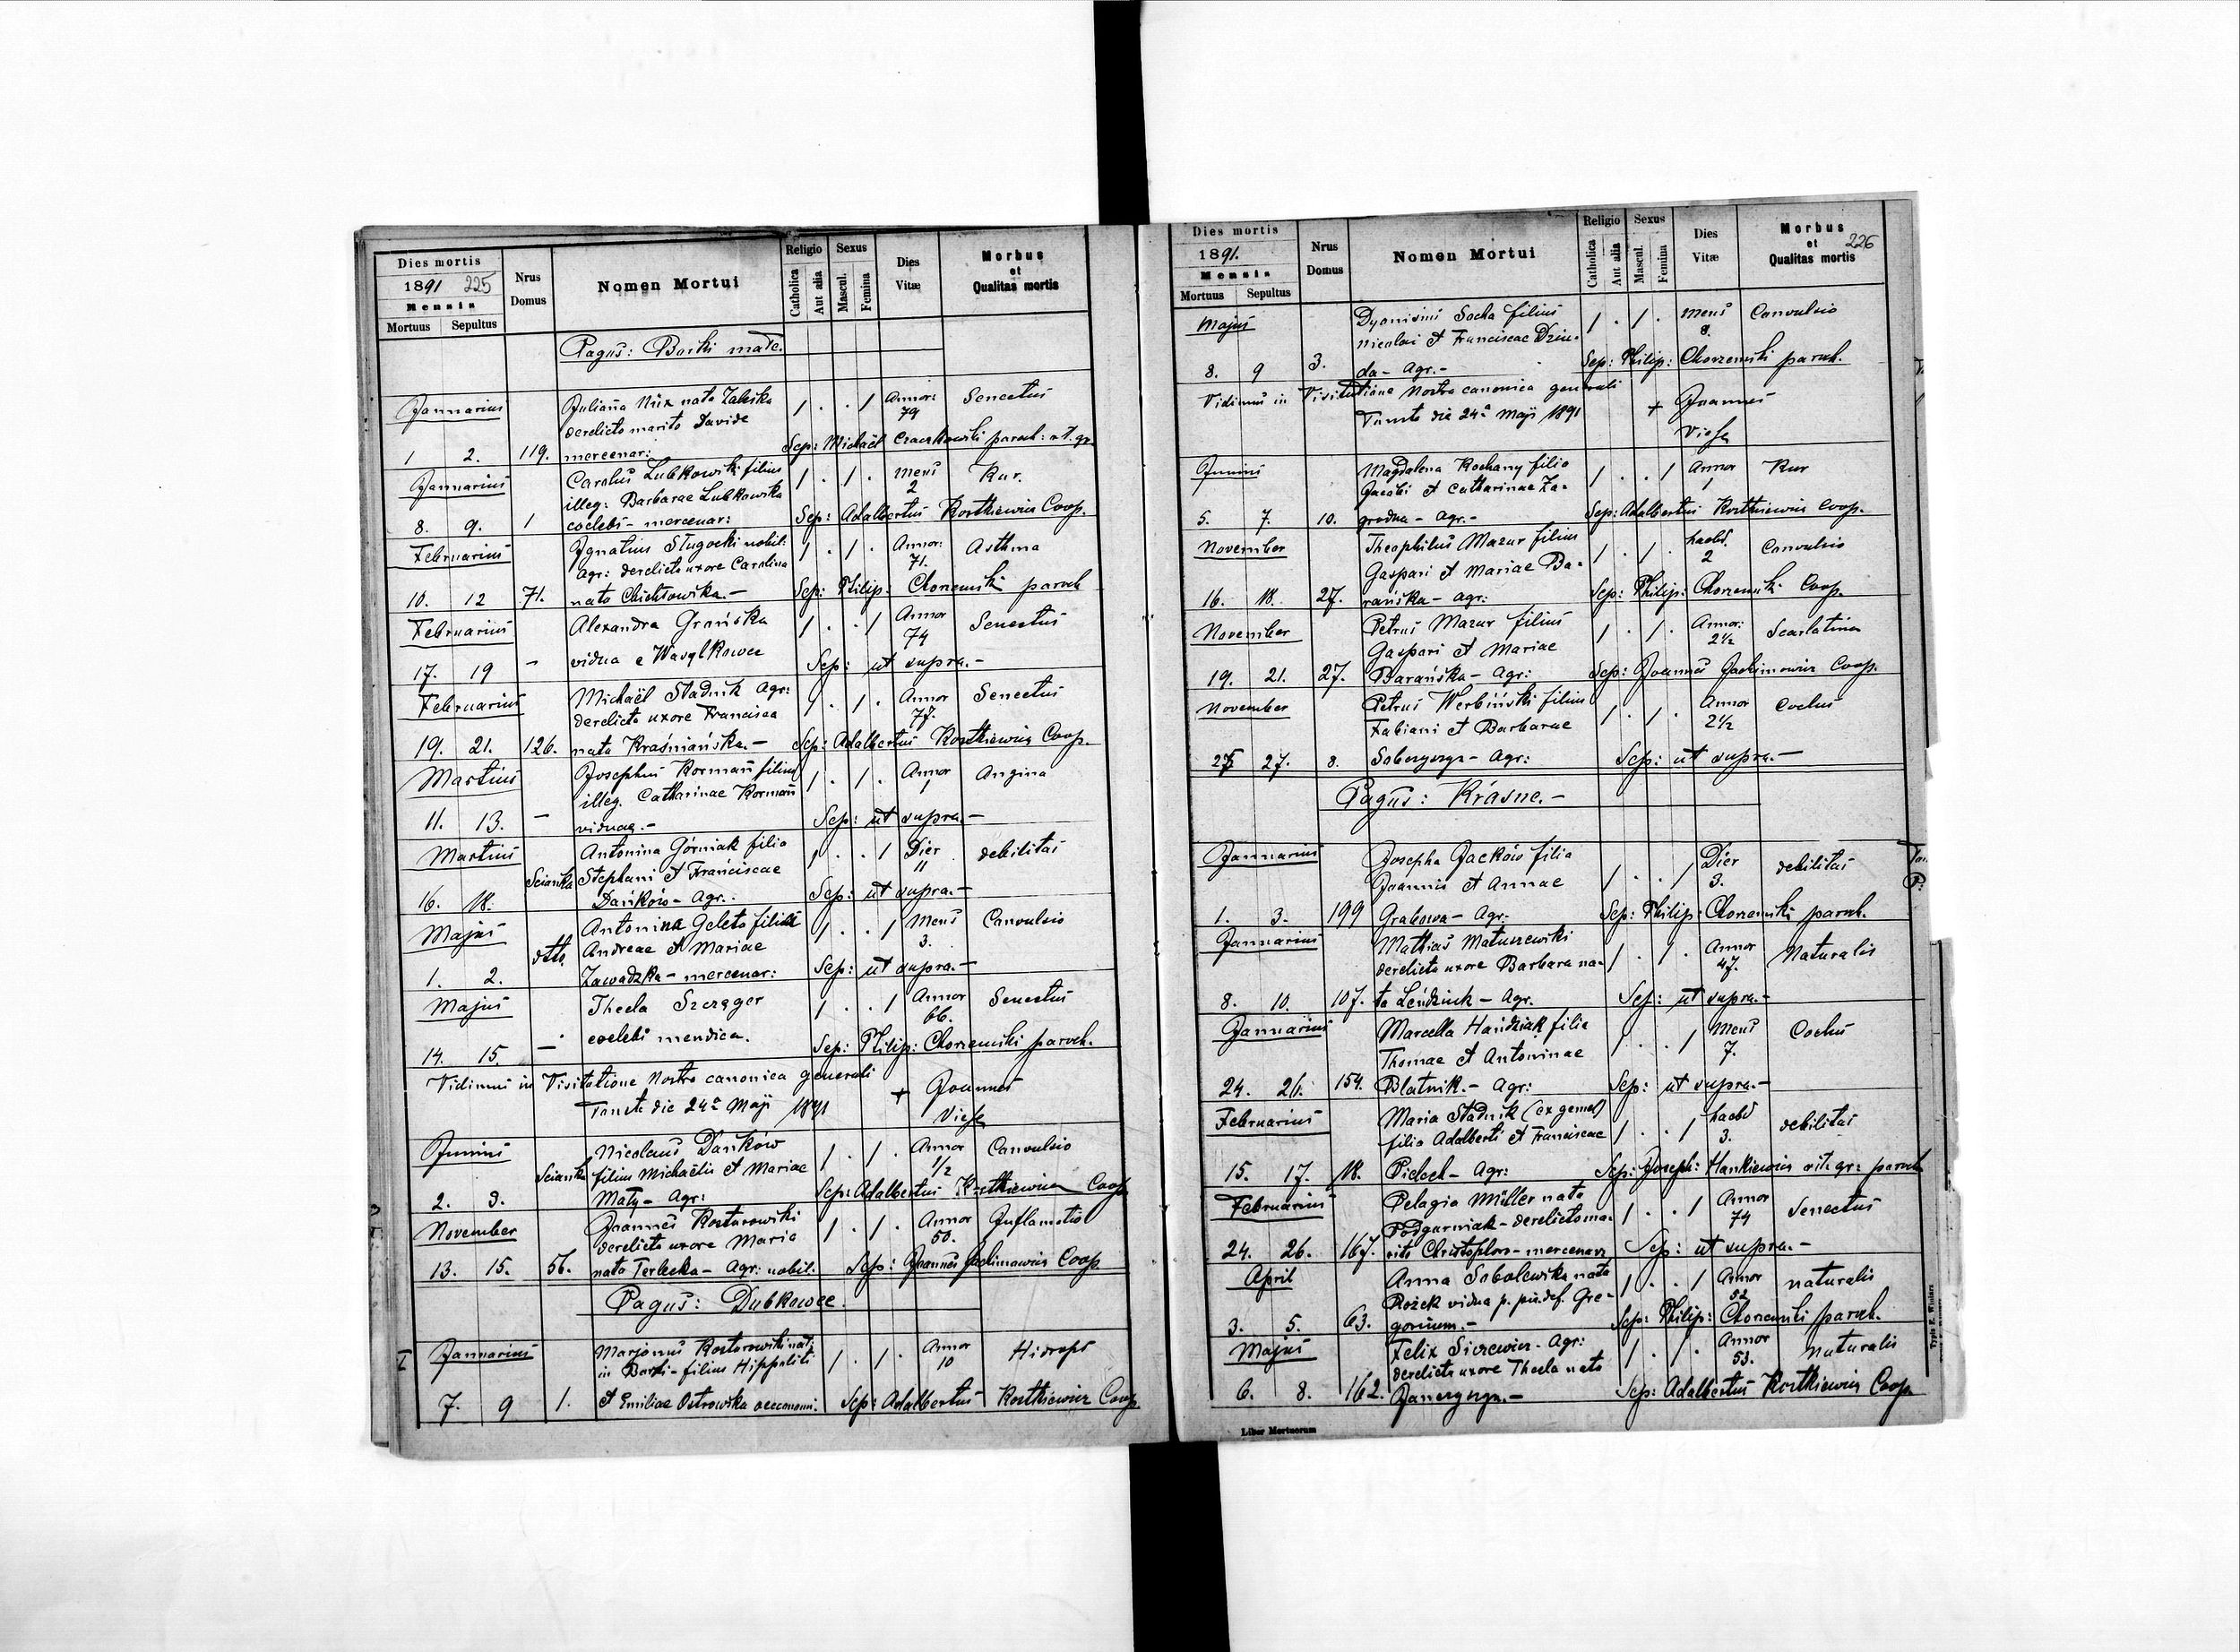 Dies mortis
1891 225
Mensis
Mortuus Sepultus
Nrus Domus
Nomen Mortui
Religio
Catholica
Aut alia
Sexus
Mascul.
Femina
Dies Vitæ
Morbus et Qualitas mortis
Pagus: Borki małe.
Januarius Juliana Nüx nata Zaleska / . . / Annor: 79 Senectus
derelicto marito Davide
1 2. 119. mercenar: Sep: Michaël Czaczkowski paroch: rt. gr.
Januarius Carolus Lubkowski filius / . / . Mens 2 Kur.
illeg: Barbarae Lubkowska
8. 9. 1 coelebs - mercenar: Sep: Adalbertus Kostkiewicz Coop.
Februarius Ignatius Sługocki nobil: / . / . Annor: 71. Asthma
Agr: derelicta uxore Carolina
10. 12 71. nata Sep: Philip: Chorzemski paroch
Februarius Alexandra Grańska / . . / Annor 74 Senectus
17. 19 - vidua e Wasylkowce Sep: ut supra.-
Februarius Michaël Stadnik Agr: / . / . Annor 77. Senectus
derelicta uxore Francisca
19. 21. 126. nata Kraśniańska.- Sep: Adalbertus Kostkiewicz Coop.
Martius Josephus Korman filius / . / . Annor 1 Angina
illeg. Catharinae Korman
11. 13. - viduae.- Sep: ut supra.-
Martius Antonina Górniak filia / . . / Dier 11 debilitas
Scianka Stephani et Franciscae
16. 18. Dańków - Agr.. Sep: ut supra.-
Majus Antonina Geleta filia / . . / Mens 3. Convulsio
dtto. Andreae et Mariae
1. 2. Zawadzka - mercenar: Sep: ut supra.-
Majus Thecla Szczager / . . / Annor 66. Senectus
14. 15. - coelebs mendica. Sep: Philip: Chorzemski paroch.
Vidimus in Visitatione Nostra canonica generali
Touste die 24a Maji 1891 + Joannes
Junius Nicolaus Danków / . / . Annor 1/2 Convulsio
Scianka filius Michaëlis et Mariae
2. 3. Maty - Agr: Sep: Adalbertus Kostkiewicz Coop
November Joannes Kosturowski / . / . Annor 50. Inflamatio
derelicta uxore Maria
13. 15. 56. nata Terlecka - Agr: nobil. Sep: Joannes Jachimowicz Coop
Pagus: Dubkowce.
Januarius Marjanus Kosturowski nat: / . / . Annor 10 Hidrops
in Borki - filius Hippoliti
7. 9 1. et Emiliae Ostrowska oeconomi. Sep: Adalbertus Kostkiewicz Coop
Dies mortis
1891.
Mensis
Mortuus Sepultus
Nrus Domus
Nomen Mortui
Religio
Catholica
Aut alia
Sexus
Mascul.
Femina
Dies Vitæ
Morbus et Qualitas mortis
226
Majus Dyonisius Socha filius / . / . Mens 8. Convulsio
Nicolai et Franciscae Dziu-
8. 9 3. da - Agr.- Sep: Philip: Chorzemski paroch.
Vidimus in Visitatione Nostra canonica generali
Touste die 24a Maji 1891 + Joannes
Junius Magdalena Kochany filia / . . / Annor 1 Kur
Jacobi et Catharinae Za-
5. 7. 10. grodna - Agr.- Sep: Adalbertus Kostkiewicz Coop.
November Theophilus Mazur filius / . / . haebd. 2 Convulsio
Gaspari et Mariae Ba-
16. 18. 27. rańska - Agr: Sep: Philip: Chorzemski Coop.
November Petrus Mazur filius / . / . Annor: 2½ Scarlatina
Gaspari et Mariae
19. 21. 27. Barańska - Agr: Sep: Joannes Jachimowicz Coop.
November Petrus Werbiński filius / . / . Annor 2½ Coclus
Fabiani et Barbarae
25 27. 8. Agr: Sep: ut supra.-
Pagus: Krasne.-
Januarius Josepha Jacków filia / . . / Dier 3. debilitas
Joannis et Annae
1. 3. 199 Grabowa - Agr: Sep: Philip: Chorzemski paroch.
Januarius Mathias Matuszewski / . / . Annor 47. Naturalis
derelicta uxore Barbara na-
8. 10. 107. ta - Agr. Sep: ut supra.-
Januarius Marcella Hańdziak filia / . . / Mens 7. Coclus
Thomae et Antoninae
24. 26. 154. Blatnik.- Agr: Sep: ut supra.-
Februarius Maria Stadnik (ex gemel) / . . / haebd 3. debilitas
filia Adalberti et Franciscae
15. 17. 18. Pielech - Agr: Sep: Joseph: Hankiewicz rit: gr: paroch
Februarius Pelagia Müller nata / . . / Annor 74 Senectus
Podgurniak - derelicto ma-
24. 26. 167. rito Christophoro - mercenar Sep: ut supra.-
April Anna Sobolewska nata / . . / Annor 52 naturalis
Rożek vidua p. pie. def. Gre-
3. 5. 63. gorium.- Sep: Philip: Chorzemski paroch.
Majus Felix Sierewicz - Agr: / . / . Annor 53. Naturalis
derelicta uxore Thecla nata
6. 8. 162. Sep: Adalbertus Kostkiewicz Coop
Liber Mortuorum